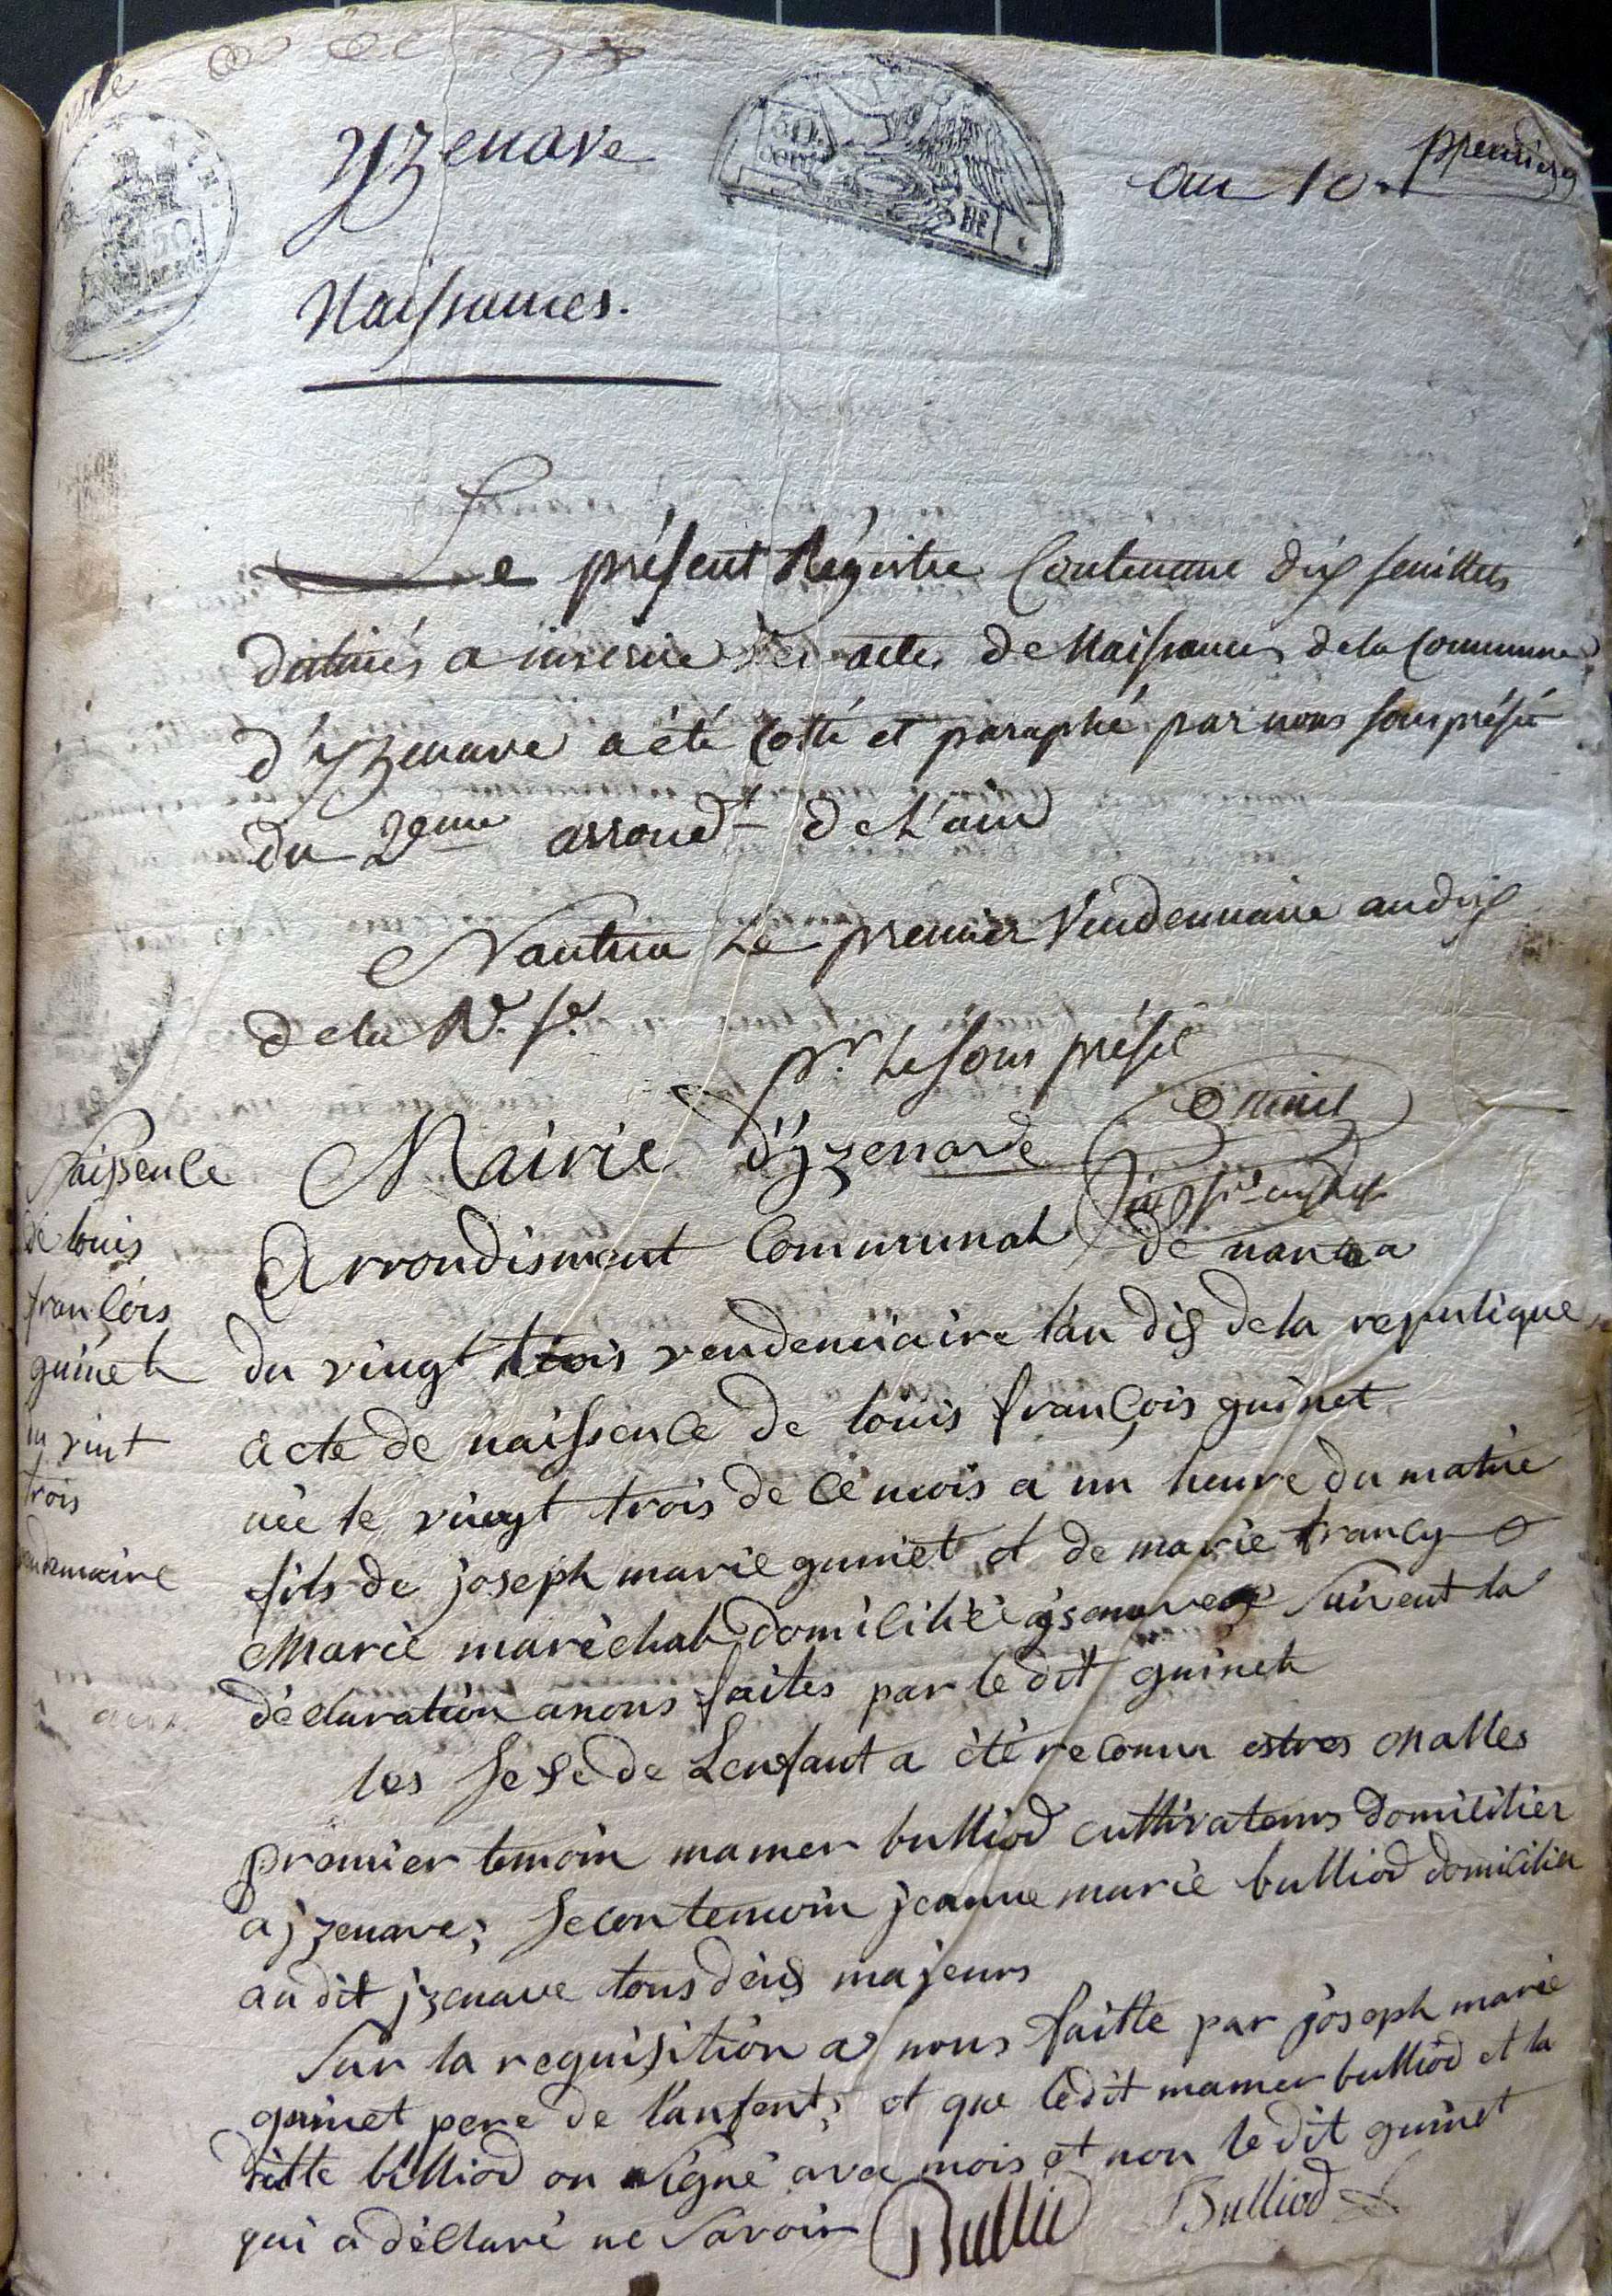 Yzenave
an 10.
premier
50
Naissances.
Le présent Régistre Contenant dix feuillets
destinés a inscrire les actes de Naissances de la Commune
d'Yzenave a été Cotté et paraphé par nous sous préfet
du 2eme arrondt de L'ain
Nantua Le premier Vendemiaire an dix
de la R.e f.e
Pr. Le sous préfet
Mairie d'yzenave
Arrondisment Communal de nantua
Naissence
de louis
francois
guinet
du vint
trois
vendemaire
du vingt trois vendemiaire l'an dix de la republique
acte de naissence de louis françois guinet
née le vingt trois de ce mois a un heure du matin
fils de joseph marie guinet et de marie francy
Marie maréchal domicilié a jsenave suivent la
déclaration a nous faites par le dit guinet
les sexe de Lenfant a été reconu estres Malles
premier temoin mamer bulliod cultivateurs domicilier
a jzenave; secon temoin jeanne marie bulliod domicilier
au dit jzenave tous deus majeurs
Sur la requisition a nous faitte par joseph marie
guinet pere de l'anfent; et que ledit mamer bulliod et la
ditte bulliod on signé avec mois et non le dit guinet
qui a déclaré ne Savoir
Bullio Bulliod